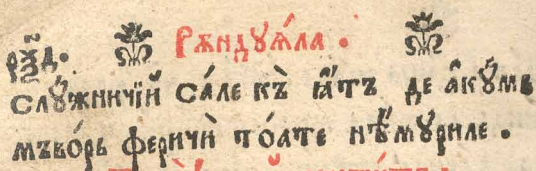 Рѫндꙋѧ́ла .
слꙋжничїи са́ле къ ꙗ҆́тъ де а҆кꙋ́мъ
мъво́рь феричѝ то́ате нѣ́мꙋриле .